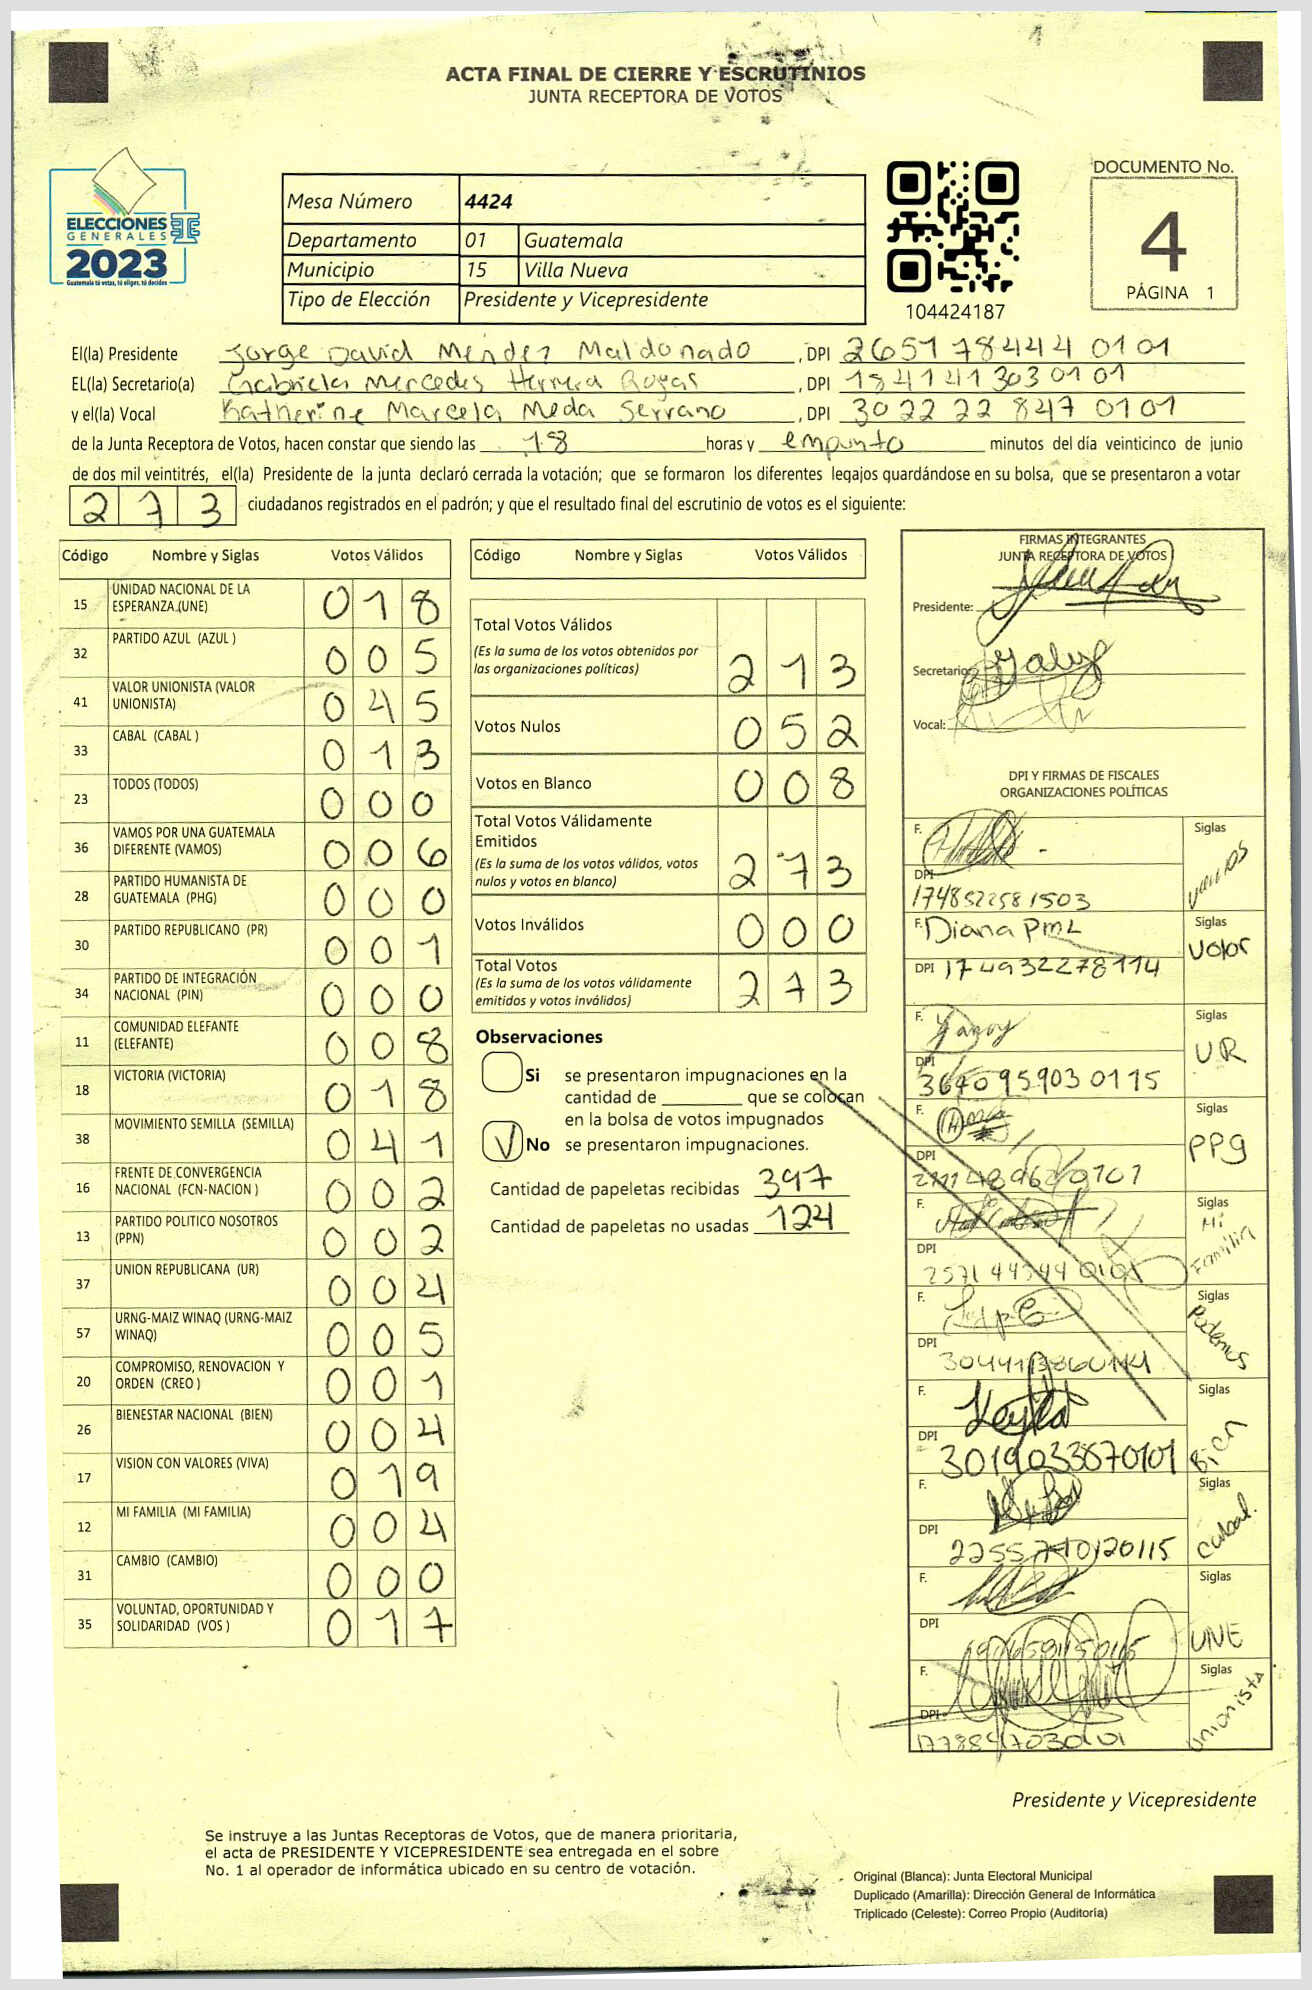 ACTA FINAL DE CIERRE Y ESCRUTINIOS
JUNTA RECEPTORA DE VOTOS
ELECCIONES
GENERALES
2023
Guatemala tú votas, tú eliges, tú decides
Mesa Número 4424
Departamento 01 Guatemala
Municipio 15 Villa Nueva
Tipo de Elección Presidente y Vicepresidente
104424187
DOCUMENTO No.
4
PÁGINA 1
El(la) Presidente Jorge David Méndez Maldonado, DPI 2651 78444 0101
EL(la) Secretario(a) Gabriela Mercedes Herrera Rogas, DPI 184141303 0101
y el(la) Vocal Katherine Marcela Meda Serrano, DPI 3022 22 847 0101
de la Junta Receptora de Votos, hacen constar que siendo las 18 horas y en punto minutos del día veinticinco de junio
de dos mil veintitrés, el(la) Presidente de la junta declaró cerrada la votación; que se formaron los diferentes legajos guardándose en su bolsa, que se presentaron a votar
273 ciudadanos registrados en el padrón; y que el resultado final del escrutinio de votos es el siguiente:
Código Nombre y Siglas Votos Válidos
15 UNIDAD NACIONAL DE LA ESPERANZA.(UNE) 018
32 PARTIDO AZUL (AZUL ) 005
41 VALOR UNIONISTA (VALOR UNIONISTA) 045
33 CABAL (CABAL ) 013
23 TODOS (TODOS) 000
36 VAMOS POR UNA GUATEMALA DIFERENTE (VAMOS) 006
28 PARTIDO HUMANISTA DE GUATEMALA (PHG) 000
30 PARTIDO REPUBLICANO (PR) 001
34 PARTIDO DE INTEGRACIÓN NACIONAL (PIN) 000
11 COMUNIDAD ELEFANTE (ELEFANTE) 008
18 VICTORIA (VICTORIA) 018
38 MOVIMIENTO SEMILLA (SEMILLA) 041
16 FRENTE DE CONVERGENCIA NACIONAL (FCN-NACION ) 002
13 PARTIDO POLITICO NOSOTROS (PPN) 002
37 UNION REPUBLICANA (UR) 004
57 URNG-MAIZ WINAQ (URNG-MAIZ WINAQ) 005
20 COMPROMISO, RENOVACION Y ORDEN (CREO ) 001
26 BIENESTAR NACIONAL (BIEN) 004
17 VISION CON VALORES (VIVA) 019
12 MI FAMILIA (MI FAMILIA) 004
31 CAMBIO (CAMBIO) 000
35 VOLUNTAD, OPORTUNIDAD Y SOLIDARIDAD (VOS ) 017
Código Nombre y Siglas Votos Válidos
Total Votos Válidos
(Es la suma de los votos obtenidos por
las organizaciones políticas) 213
Votos Nulos 052
Votos en Blanco 008
Total Votos Válidamente
Emitidos
(Es la suma de los votos válidos, votos
nulos y votos en blanco) 273
Votos Inválidos 000
Total Votos
(Es la suma de los votos válidamente
emitidos y votos inválidos) 273
Observaciones
Si se presentaron impugnaciones en la
cantidad de ________ que se colocan
en la bolsa de votos impugnados
No se presentaron impugnaciones.
Cantidad de papeletas recibidas 397
Cantidad de papeletas no usadas 124
FIRMAS INTEGRANTES
JUNTA RECEPTORA DE VOTOS
Presidente:
Secretario:
Vocal:
DPI Y FIRMAS DE FISCALES
ORGANIZACIONES POLÍTICAS
F. Siglas Vamos
DPI 1748522581503
F. Diana PmL Siglas Valor
DPI 174932278114
F. Siglas UR
DPI 3640959030115
F. Siglas PPg
DPI
F. Siglas Mi Familia
DPI
F. Siglas Podemos
DPI
F. Keyla Siglas Bien
DPI 3019033870101
F. Siglas Cabal.
DPI
F. Siglas UNE
DPI
F. Siglas unionista
DPI
Presidente y Vicepresidente
Se instruye a las Juntas Receptoras de Votos, que de manera prioritaria,
el acta de PRESIDENTE Y VICEPRESIDENTE sea entregada en el sobre
No. 1 al operador de informática ubicado en su centro de votación.
Original (Blanca): Junta Electoral Municipal
Duplicado (Amarilla): Dirección General de Informática
Triplicado (Celeste): Correo Propio (Auditoría)